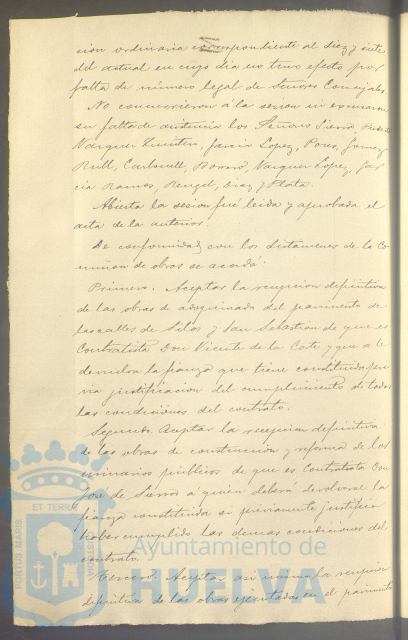 sion ordinaria correspondiente al diez y siete
del actual en cuyo dia no tuvo efecto por
falta de número legal de Señores Concejales.
No concurrieron á la sesion ni excusaron
su falta de asistencia los Señores Sierra,
Vazquez Limon, Garcia Lopez, Pons, Gomez
Rull, Carbonell, Borrero, Vazquez Lopez, Gar
cia Ramos, Rengel, Diaz y Plata.
Abierta la sesion fué leida y aprobada el
acta de la anterior.
De conformidad con los dictamenes de la Co
mision de obras se acordó:
Primero. Aceptar la recepcion definitiva
de las obras de adoquinado del pavimento de
las calles de Silos y San Sebastian de que es
Contratista Don Vicente de la Corte y que se le
devuelva la fianza que tiene constituida pre
via justificacion del cumplimiento de todas
las condiciones del contrato.
Segundo. Aceptar la recepcion definitiva
de las obras de construccion y reforma de los
urinarios públicos de que es Contratista Don
José de Sierra a quien deberá devolverse la
fianza constituida si previamente justifica
haber cumplido las demas condiciones del
contrato.
Tercero. Aceptar asi mismo la recepcion
definitiva de las obras ejecutadas en el pavimento
PORTUS MARIS
ET TERRAE
CUSTODIA
Ayuntamiento de
HUELVA